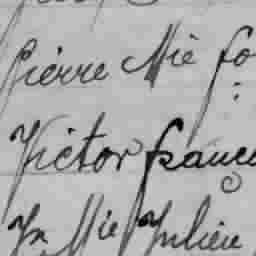 Pierre Mié fo
Victor franc
Mie Julien